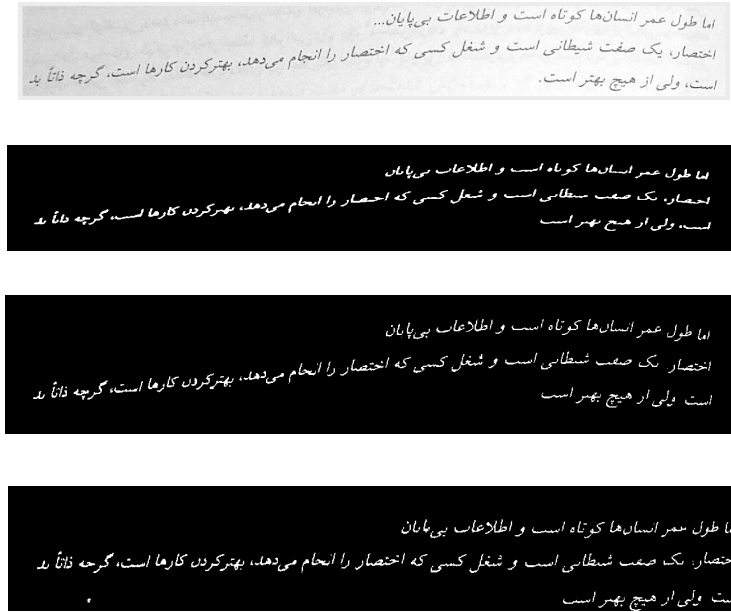 اما طول عمر انسان‌ها کوتاه است و اطلاعات بی‌پایان...
اختصار، یک صفت شیطانی است و شغل کسی که اختصار را انجام می‌دهد، بهترکردن کارها است، گرچه ذاتاً بد
است، ولی از هیچ بهتر است.
اما طول عمر انسان‌ها کوتاه است و اطلاعات بی‌پایان
اختصار، یک صفت شیطانی است و شغل کسی که اختصار را انجام می‌دهد، بهترکردن کارها است، گرچه ذاتاً بد
است، ولی از هیچ بهتر است
اما طول عمر انسان‌ها کوتاه است و اطلاعات بی‌پایان
اختصار یک صفت شیطانی است و شغل کسی که اختصار را انجام می‌دهد، بهترکردن کارها است، گرچه ذاتاً بد
است ولی از هیچ بهتر است
طول عمر انسان‌ها کوتاه است و اطلاعات بی‌پایان
یک صفت شیطانی است و شغل کسی که اختصار را انجام می‌دهد، بهترکردن کارها است، گرچه ذاتاً بد
ولی از هیچ بهتر است